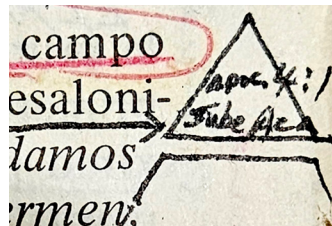 campo
esaloni-
damos
ermen,
apoc. 4:1
Sube Aca